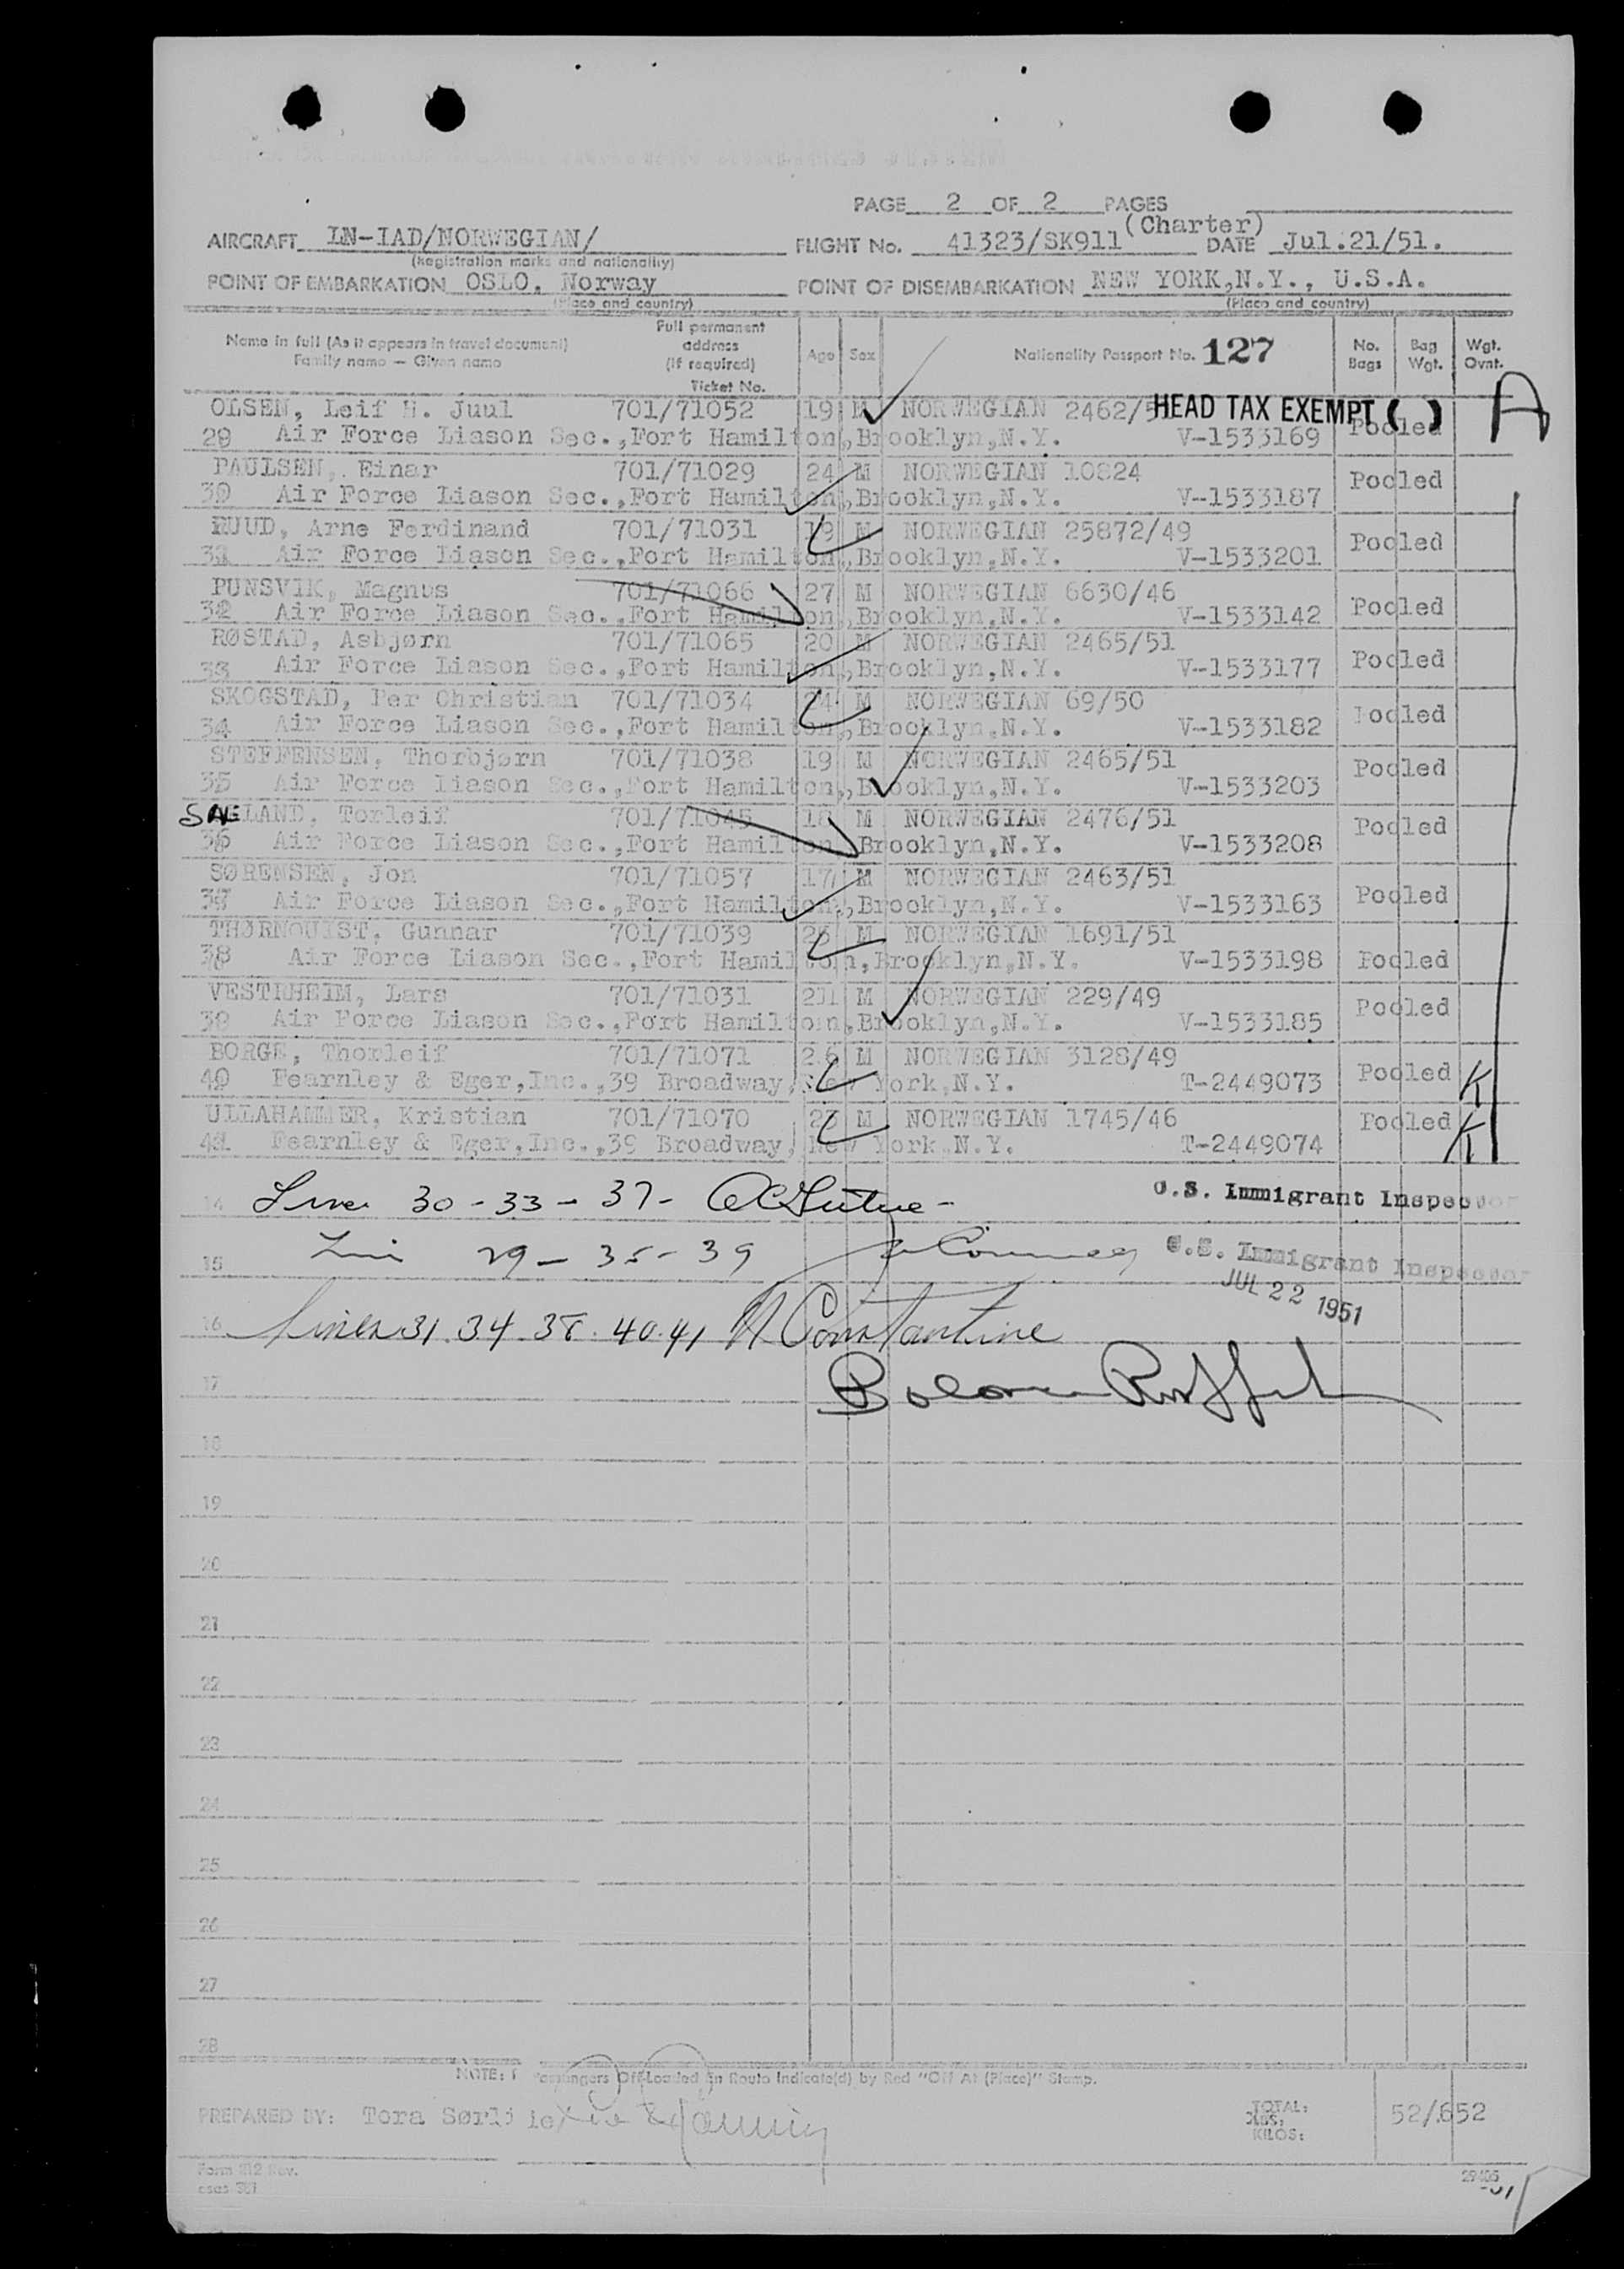 PAGE 2 OF 2 PAGES
(Charter)
AIRCRAFT LN-IAD/NORWEGIAN/ FLIGHT No. 41323/SK911 DATE Jul.21/51.
(Registration marks and nationality)
POINT OF EMBARKATION OSLO, Norway POINT OF DISEMBARKATION NEW YORK,N.Y., U.S.A.
(Place and country) (Place and country)
Name in full (As it appears in travel document) Family name — Given name Full permanent address (if required) Ticket No. Age Sex Nationality Passport No. 127 No. Bags Bag Wgt. Wgt. Ovnt.
OLSEN, Leif H. Juul 701/71052 19 M NORWEGIAN 2462/5 HEAD TAX EXEMPT ( ) A
29 Air Force Liason Sec.,Fort Hamilton,Brooklyn,N.Y. V-1533169 Pooled
PAULSEN, Einar 701/71029 24 M NORWEGIAN 10824
30 Air Force Liason Sec.,Fort Hamilton,Brooklyn,N.Y. V-1533187 Pooled
RUUD, Arne Ferdinand 701/71031 19 M NORWEGIAN 25872/49
31 Air Force Liason Sec.,Fort Hamilton,Brooklyn,N.Y. V-1533201 Pooled
PUNSVIK, Magnus 701/71066 27 M NORWEGIAN 6630/46
32 Air Force Liason Sec.,Fort Hamilton,Brooklyn,N.Y. V-1533142 Pooled
RØSTAD, Asbjørn 701/71065 20 M NORWEGIAN 2465/51
33 Air Force Liason Sec.,Fort Hamilton,Brooklyn,N.Y. V-1533177 Pooled
SKOGSTAD, Per Christian 701/71034 24 M NORWEGIAN 69/50
34 Air Force Liason Sec.,Fort Hamilton,Brooklyn,N.Y. V-1533182 Pooled
STEFFENSEN, Thorbjørn 701/71038 19 M NORWEGIAN 2465/51
35 Air Force Liason Sec.,Fort Hamilton,Brooklyn,N.Y. V-1533203 Pooled
SÆLAND, Torleif 701/71045 18 M NORWEGIAN 2476/51
36 Air Force Liason Sec.,Fort Hamilton Brooklyn,N.Y. V-1533208 Pooled
SØRENSEN, Jon 701/71057 17 M NORWEGIAN 2463/51
37 Air Force Liason Sec.,Fort Hamilton,Brooklyn,N.Y. V-1533163 Pooled
THØRNQUIST, Gunnar 701/71039 26 M NORWEGIAN 1691/51
38 Air Force Liason Sec.,Fort Hamilton,Brooklyn,N.Y. V-1533198 Pooled
VESTRHEIM, Lars 701/71031 21 M NORWEGIAN 229/49
39 Air Force Liason Sec.,Fort Hamilton,Brooklyn,N.Y. V-1533185 Pooled
BORGE, Thorleif 701/71071 26 M NORWEGIAN 3128/49
40 Fearnley & Eger,Inc.,39 Broadway,New York,N.Y. T-2449073 Pooled K
ULLAHAMMER, Kristian 701/71070 23 M NORWEGIAN 1745/46
41 Fearnley & Eger,Inc.,39 Broadway,New York,N.Y. T-2449074 Pooled K
14 Lines 30-33-37- U.S. Immigrant Inspector
15 29-35-39 U.S. Immigrant Inspector
JUL 22 1951
16 Lines 31.34.38.40.41 Constantine
17
18
19
20
21
22
23
24
25
26
27
28
NOTE: Passengers Off-Loaded En Route Indicate(d) by Red "Off At (Place)" Stamp.
PREPARED BY: Tora Sørli TOTAL: LBS: KILOS: 52/652
Form 812 Rev.
29405